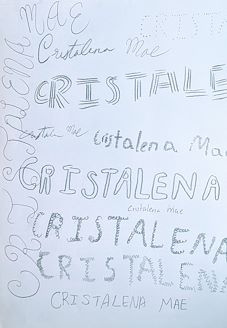 CRISTALENA MAE
CRISTA
Cristalena Mae
CRISTALE
Cristalena Mae
Cristalena Mae
CRISTALENA
Cristalena Mae
CRISTALENA
CRISTALENA
CRISTALENA MAE